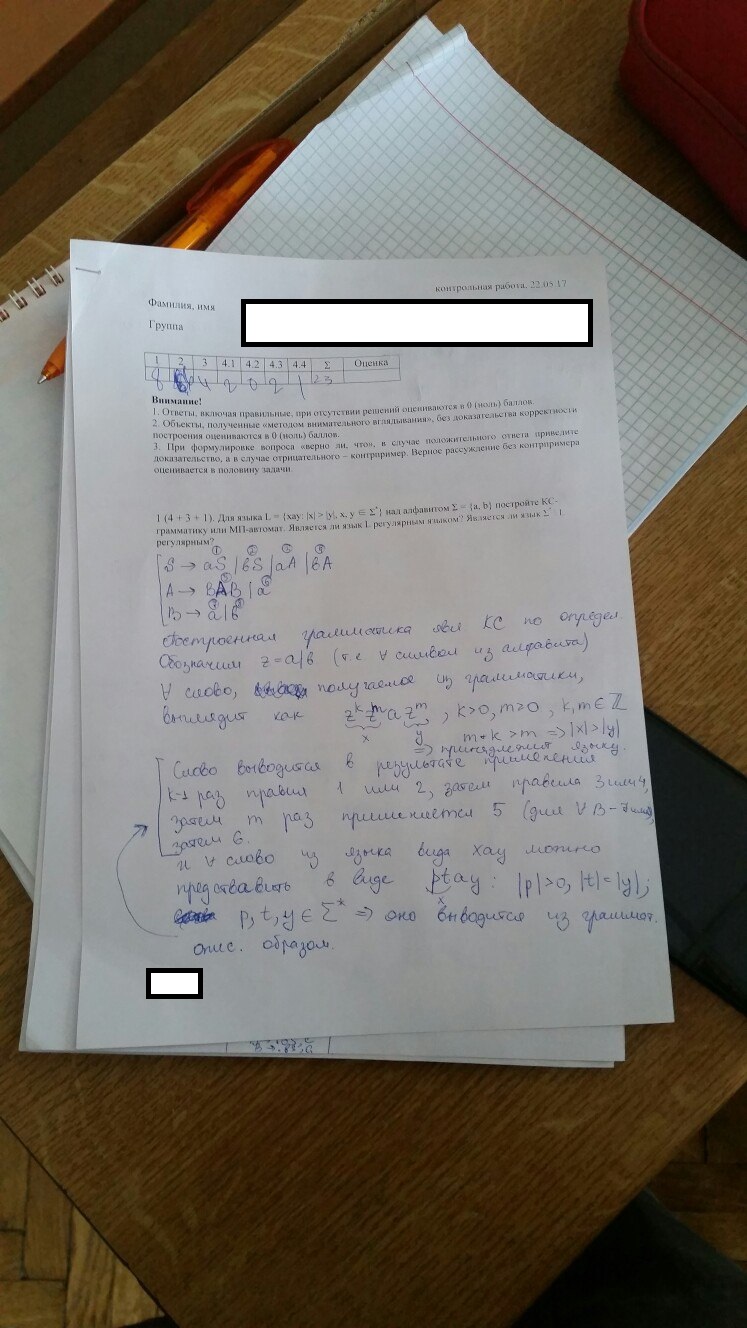 контрольная работа, 22.05.17
Фамилия, имя
Группа
1 2 3 4.1 4.2 4.3 4.4 Σ Оценка
8 4 2 0 2 1 23
Внимание!
1. Ответы, включая правильные, при отсутствии решений оцениваются в 0 (ноль) баллов.
2. Объекты, полученные «методом внимательного вглядывания», без доказательства корректности
построения оцениваются в 0 (ноль) баллов.
3. При формулировке вопроса «верно ли, что», в случае положительного ответа приведите
доказательство, а в случае отрицательного – контрпример. Верное рассуждение без контрпримера
оценивается в половину задачи.
1 (4 + 3 + 1). Для языка L = {xay: |x| > |y|, x, y ∈ Σ*} над алфавитом Σ = {a, b} постройте КС-
грамматику или МП-автомат. Является ли язык L регулярным языком? Является ли язык Σ* \ L
регулярным?
S → aS | bS | aA | bA
A → BAB | a
B → a | b
Построенная грамматика явл КС по определ
Обозначим z = a|b (т.е ∀ символ из алфавита)
∀ слово, получаемое из грамматики,
выглядит как z^k z^m a z^m, k>0, m≥0, k, m ∈ ℤ
x y m+k > m ⇒ |x|>|y|
⇒ принадлежит языку.
Слово выводится в результате применения
k-1 раз правил 1 или 2, затем правила 3 или 4,
затем m раз применяется 5 (для ∀ B – 7 или
затем 6.
и ∀ слово из языка вида xay можно
представить в виде ptay: |p|>0, |t|=|y|;
x
p, t, y ∈ Σ* ⇒ оно выводится из граммат.
опис. образом.